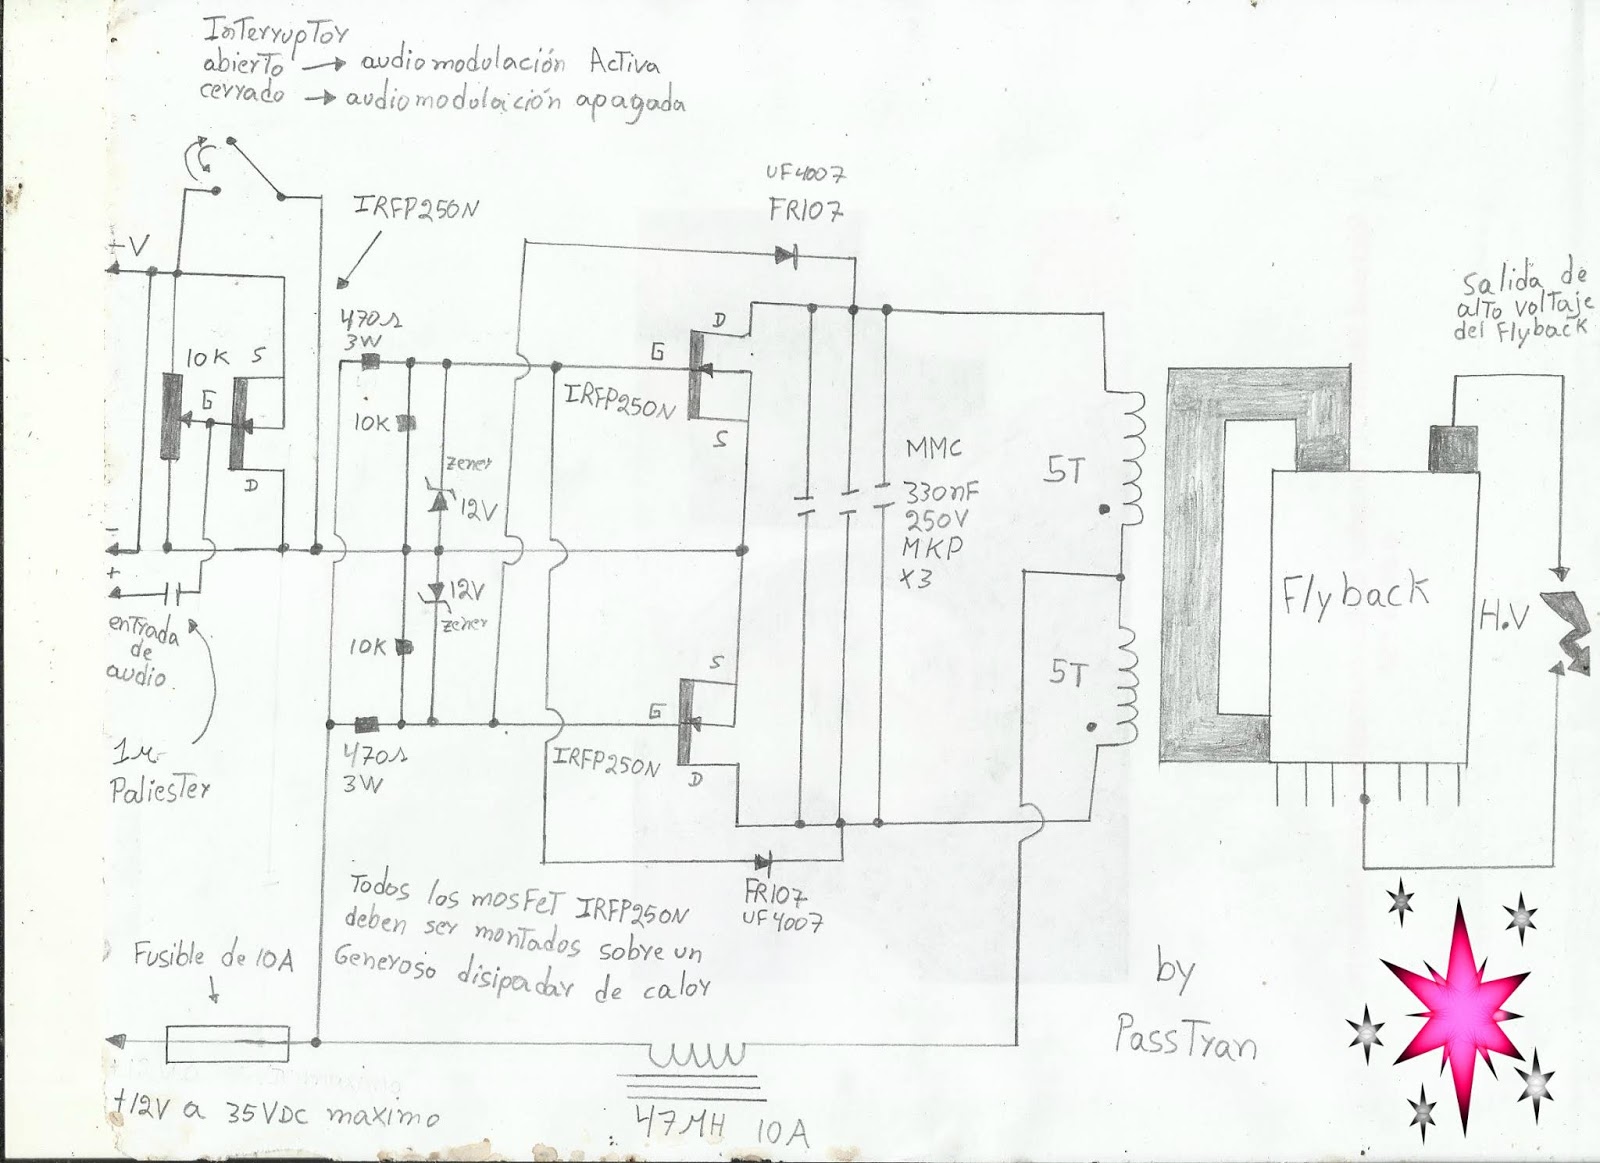 InTerrupTor
abierTo → audiomodulación AcTiva
cerrado → audiomodulación apagada
UF4007
FR107
IRFP250N
-V
470Ω
3W
10K
S
G
D
D
G
IRFP250N
S
10K
zener
12V
MMC
330nF
250V
MKP
X3
5T
salida de
alto volTaje
del Flyback
-
+
enTrada
de
audio
12V
zener
10K
Flyback
H.V
5T
S
G
IRFP250N
D
1μ
PaliesTer
470Ω
3W
FR107
UF4007
Todos los mosFeT IRFP250N
deben ser monTados sobre un
Generoso disipador de calor
Fusible de 10A
by
PassTran
+12V a 35VDC maximo
47MH 10A